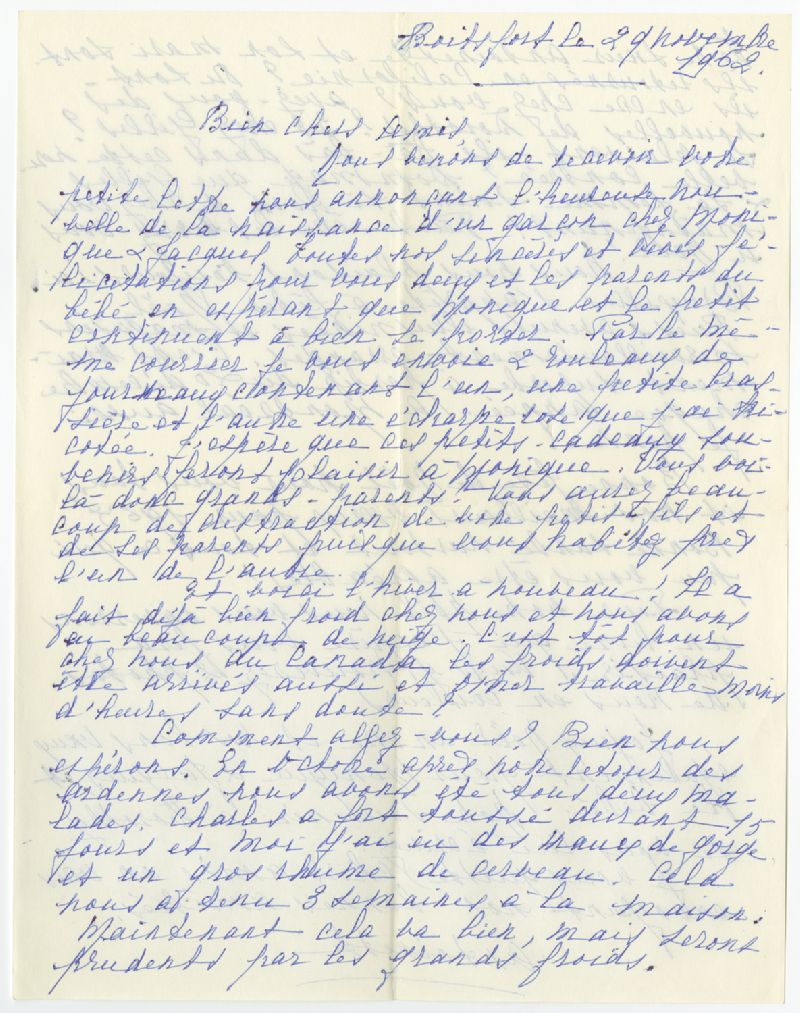 Boitsfort le 29 novembre
1962.
Bien chers Amis,
Nous venons de recevoir votre
petite lettre nous annonçant l'heureuse nou-
velle de la naissance d'un garçon chez Moni-
que & Jacques toutes nos sincères et vives fé-
licitations pour vous deux et les parents du
bébé en espérant que Monique et le petit
continuent à bien se porter. Par le mê-
me courrier je vous envoie 2 rouleaux de
journeaux contenant l'un, une petite bras-
sière et l'autre une écharpe rose que j'ai tri-
cotée. J'espère que ces petits cadeaux sou-
venirs feront plaisir à Monique. Vous voi-
là donc grands-parents! Vous aurez beau-
coup de distraction de votre petit-fils et
de ses parents puisque vous habitez près
l'un de l'autre.
Et voici l'hiver à nouveau! Il a
fait déjà bien froid chez nous et nous avons
eu beaucoup de neige. C'est tôt pour
chez nous. Au Canada les froids doivent
être arrivés aussi et Omer travaille moins
d'heures sans doute?
Comment allez-vous? Bien nous
espérons. En octobre après notre retour des
Ardennes nous avons été tous deux ma-
lades. Charles a fort toussé durant 15
jours et moi j'ai eu des maux de gorge
et un gros rhume de cerveau. Cela
nous a tenu 3 semaines à la maison.
Maintenant cela va bien, mais serons
prudents par les grands froids.